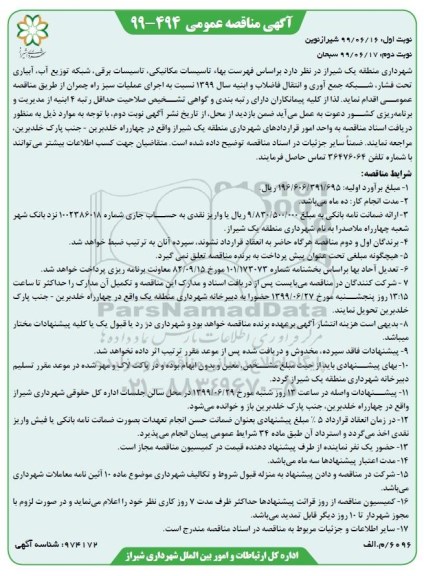 آگهی مناقصه عمومی ۴۹۴-۹۹
نوبت اول: ۹۹/۰۶/۱۶ شیرازنوین
نوبت دوم: ۹۹/۰۶/۱۷ سبحان
شهرداری منطقه یک شیراز در نظر دارد براساس فهرست بهاء تاسیسات مکانیکی، تاسیسات برقی، شبکه توزیع آب، آبیاری
تحت فشار، شبکه جمع آوری و انتقال فاضلاب و ابنیه سال ۱۳۹۹ نسبت به اجرای عملیات سبز راه چمران از طریق مناقصه
عمومی اقدام نماید. لذا از کلیه پیمانکاران دارای رتبه بندی و گواهی تشخیص صلاحیت حداقل رتبه ۴ ابنیه از مدیریت و
برنامه‌ریزی کشور دعوت به عمل می‌آید ضمن بازدید از محل، از تاریخ نشر آگهی نوبت دوم، با توجه به موارد ذیل به منظور
دریافت اسناد مناقصه به واحد امور قراردادهای شهرداری منطقه یک شیراز واقع در چهارراه خلدبرین - جنب پارک خلدبرین،
مراجعه نمایند. ضمناً سایر جزئیات در اسناد مناقصه توضیح داده شده است. متقاضیان جهت کسب اطلاعات بیشتر می‌توانند
با شماره تلفن ۳۶۴۷۶۰۶۴ تماس حاصل فرمایند.
شرایط مناقصه:
۱- مبلغ برآورد اولیه: ۱۹۶/۶۰۶/۳۹۱/۶۹۵ ریال.
۲- مدت انجام کار: ده ماه می‌باشد.
۳- ارائه ضمانت نامه بانکی به مبلغ ۹/۸۳۰/۵۰۰/۰۰۰ ریال یا واریز نقدی به حساب جاری شماره ۱۰۰۲۳۸۶۰۱۸ نزد بانک شهر
شعبه چهارراه ملاصدرا به نام شهرداری منطقه یک شیراز.
۴- برندگان اول و دوم مناقصه هرگاه حاضر به انعقاد قرارداد نشوند، سپرده آنان به ترتیب ضبط خواهد شد.
۵- هیچگونه مبلغی تحت عنوان پیش پرداخت به برنده مناقصه تعلق نمی گیرد.
۶- تعدیل آحاد بها براساس بخشنامه شماره ۱۰۱/۱۷۳۰۷۳ مورخ ۸۲/۰۹/۱۵ معاونت برنامه ریزی پرداخت خواهد شد.
۷- شرکت کنندگان در مناقصه می‌بایست پس از دریافت اسناد و مدارک این مناقصه و تکمیل آن مدارک را حداکثر تا ساعت
۱۳:۱۵ روز پنجشنبه مورخ ۱۳۹۹/۰۶/۲۷ حضورا به دبیرخانه شهرداری منطقه یک واقع در چهارراه خلدبرین - جنب پارک
خلدبرین تحویل نمایند.
۸- بدیهی است هزینه انتشار آگهی برعهده برنده مناقصه خواهد بود و شهرداری در رد یا قبول یک یا کلیه پیشنهادات مختار
میباشد.
۹- پیشنهادات فاقد سپرده، مخدوش و دریافت شده پس از موعد مقرر ترتیب اثر داده نخواهد شد.
۱۰- بهای پیشنهادی باید از حیث مبلغ مشخص، معین و بدون ابهام بوده و در پاکت لاک و مهر شده در موعد مقرر تسلیم
دبیرخانه شهرداری منطقه یک شیراز گردد.
۱۱- پیشنهادات واصله در ساعت ۱۳ روز شنبه مورخ ۱۳۹۹/۰۶/۲۹ در محل سالن جلسات اداره کل حقوقی شهرداری شیراز
واقع در چهارراه خلدبرین، جنب پارک خلدبرین باز و خوانده می‌شود.
۱۲- در زمان انعقاد قرارداد ۵ ٪ مبلغ پیشنهادی بعنوان ضمانت حسن انجام تعهدات بصورت ضمانت نامه بانکی یا فیش واریز
نقدی اخذ می‌گردد و استرداد آن طبق ماده ۳۴ شرایط عمومی پیمان انجام می‌پذیرد.
۱۳- حضور یک نفر نماینده از طرف پیشنهاد دهنده قیمت در کمیسیون مناقصه مجاز است.
۱۴- مدت اعتبار پیشنهادها سه ماه می‌باشد.
۱۵- شرکت در مناقصه و دادن پیشنهاد به منزله قبول شروط و تکالیف شهرداری موضوع ماده ۱۰ آئین نامه معاملات شهرداری
می‌باشد.
۱۶- کمیسیون مناقصه از روز قرائت پیشنهادها حداکثر ظرف مدت ۷ روز کاری نظر خود را اعلام می‌نماید و در صورت لزوم با
مجوز شهردار تا ۱۰ روز دیگر قابل تمدید می‌باشد.
۱۷- سایر اطلاعات و جزئیات مربوط به مناقصه در اسناد مناقصه مندرج است.
۶۰۹۶/م.الف
۹۷۴۱۷۲: شناسه آگهی
اداره کل ارتباطات و امور بین الملل شهرداری شیراز
ParsNamadData
۰۲۱-۸۸۳۴۹۶۷۰